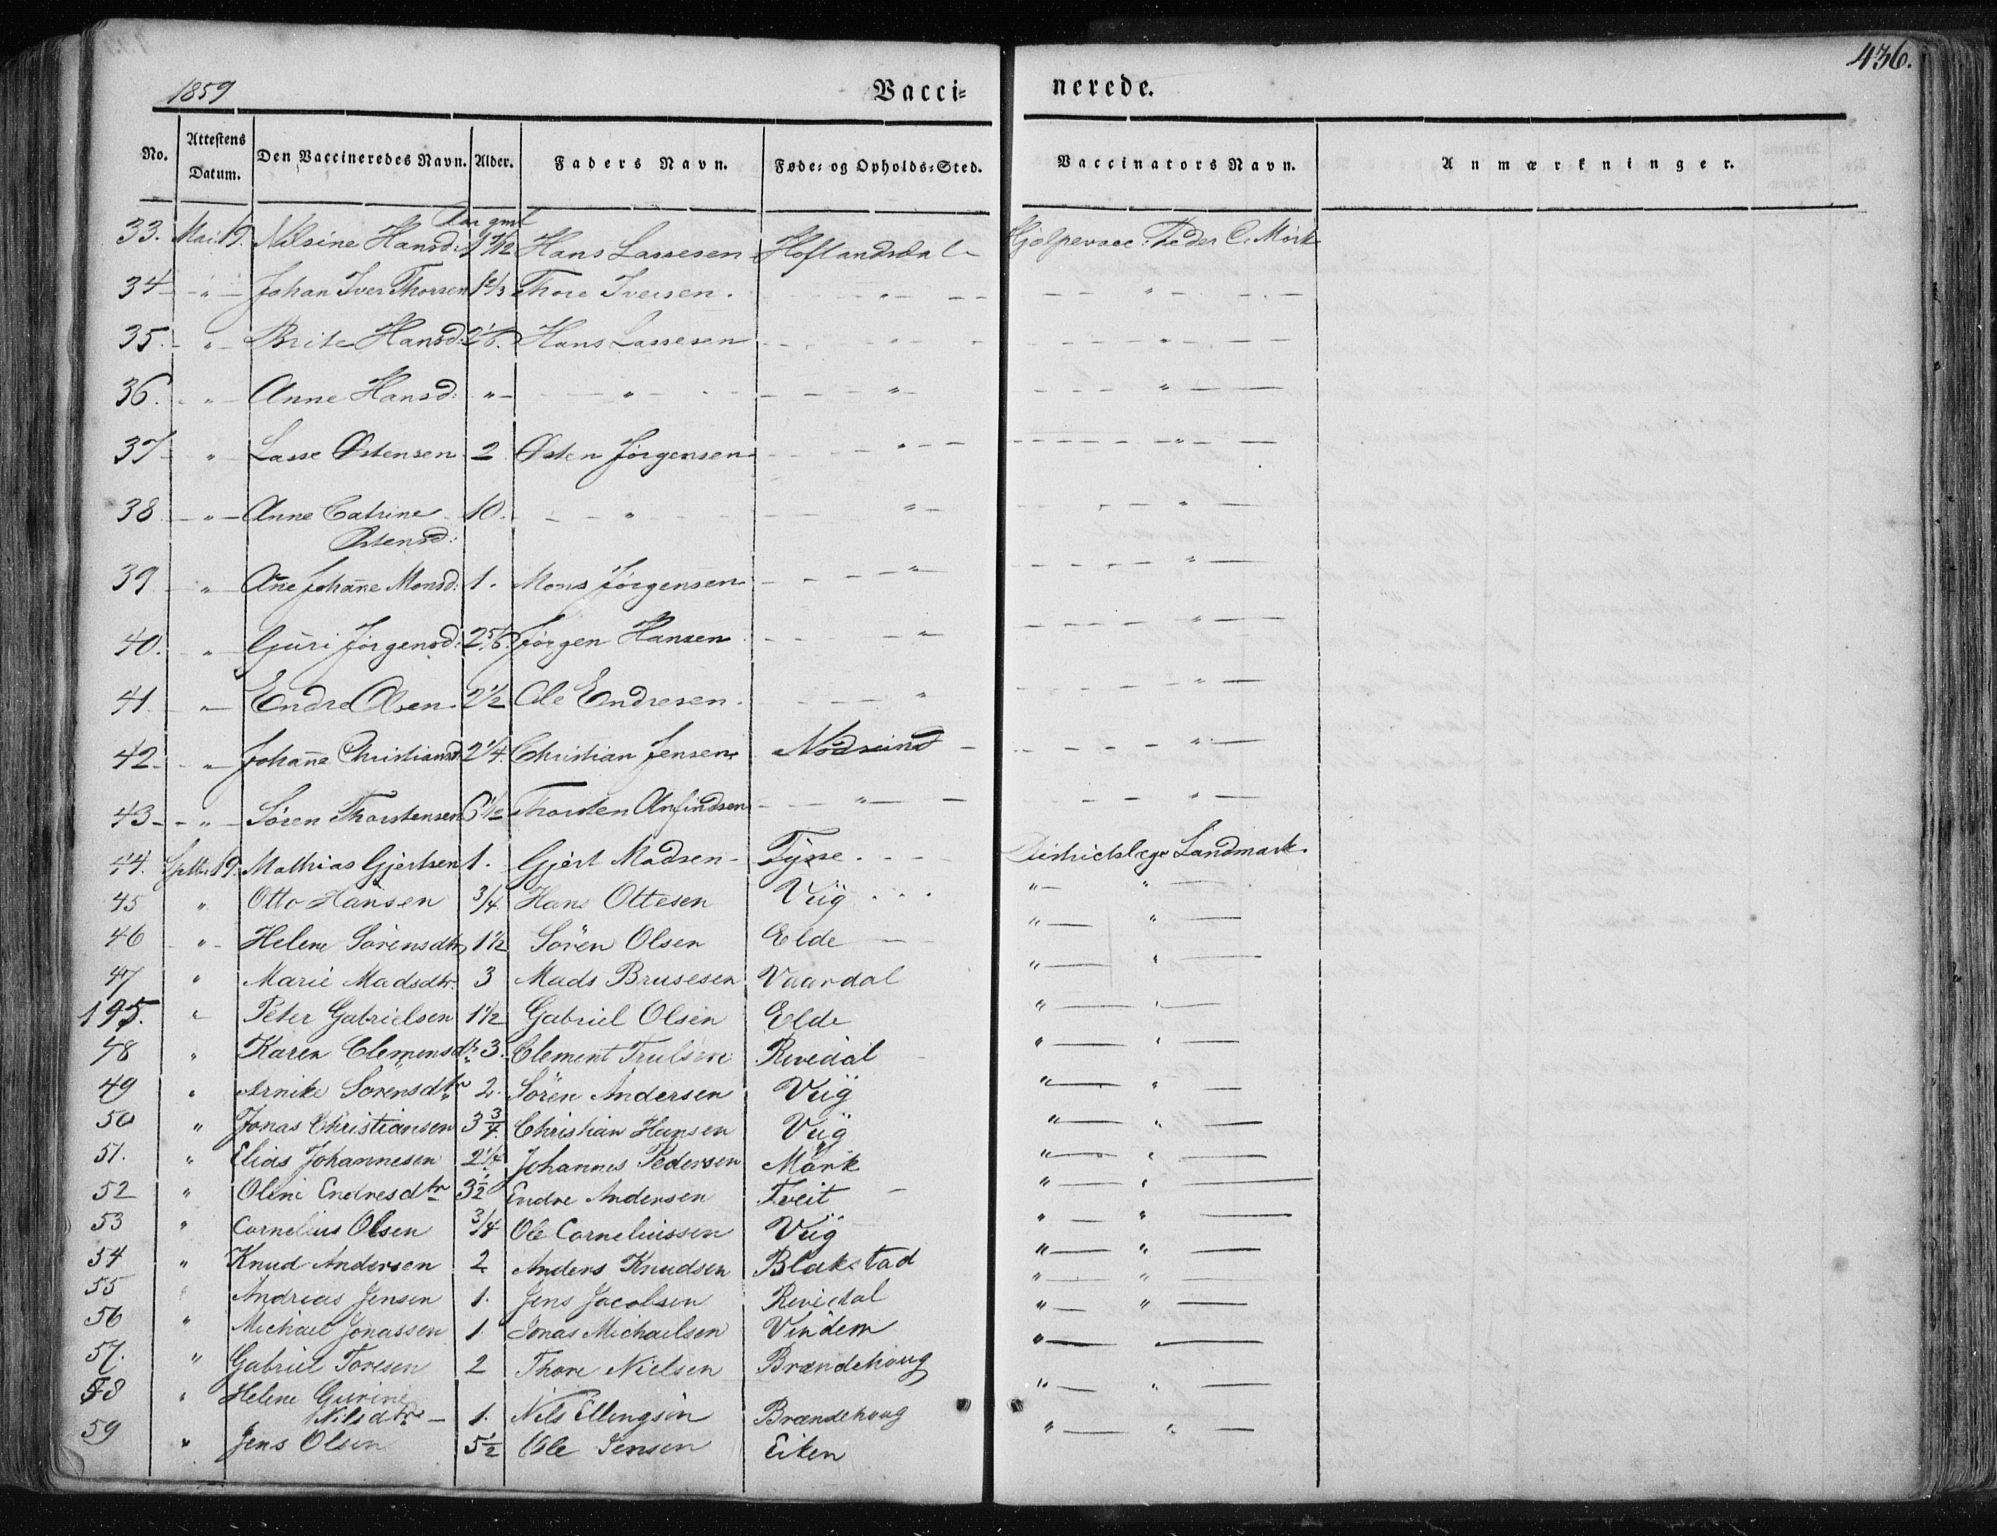 436.
1859
Vacci= nerede.
No. Attestens Datum. Den Vaccineredes Navn. Alder. Faders Navn. Føde= og Opholds=Sted. Vaccinators Navn. Anmærkninger.
Aar gml
33. Mai 19. Nilsine Hansd: 1 7/12 Hans Lassesen Hoflandsdal - Hjelpevac: Peder C. Mørk
34 - " - Johan Iver Thorsen 1 2/3 Thore Iversen. - " - - - " - -
35. - " - Brite Hansd: 2 1/6. Hans Lassesen - " - - " -
36. - " - Anne Hansd: " - - " - - " - - " -
37 - " - Lasse Østensen 2 Østen Jørgensen - " - - - " -
38 - " - Anne Catrine 10. - " - " - - " -
Østensd:
39 - " - Ane Johane Monsd: 1. Mons Jørgensen - " - " -
40. " - Guri Jørgensd: 2 5/6. Jørgen Hansen - " - " -
41 " - Endre Olsen 2 1/2 Ole Endresen. - " - " -
42 - " - Johane Christiansd 2 1/4. Christian Jensen - " -
43 - - " - Søren Thorstensen 6 1/2 Thorsten Anfindsen - " - - " -
44. Sptbr. 19. Mathias Gjertsen 1. Gjert Madsen - Tysse. - - Districtslæge Landmark.
45 " Otto Hansen 3/4 Hans Ottesen Viig - - " - " -
46 - " - Helene Sørensdtr 1 1/2 Sören Olsen Elde - " - " -
47 " Marie Madsdtr. 3 Mads Brusesen Vaardal " - " -
195. " Peter Gabrielsen 1 1/2 Gabriel Olsen Elde " - " -
48 " Karen Clemensdtr 3. Clement Trulsen Revedal " - " -
49 " Arnike Sorensdtr 2. Sören Andersen Viig " - " -
50 " Jonas Christiansen 3 3/4. Christian Hansen Viig " - " -
51. " Elias Johannesen 2 1/4 Johannes Pedersen Mörk " - " -
52 " Oline Endresdtr 3 1/2 Endre Andersen Tveit - " - " -
53 " Cornelius Olsen 3/4 Ole Corneliussen Viig " - " -
54 " Knud Andersen 2 Anders Knudsen Blakstad " - " -
55 " Andreas Jensen 1. Jens Jacobsen Revedal " - " -
56 " Michael Jonassen 1 Jonas Michaelsen Vindem " - " -
57. " Gabriel Toresen 2 Thore Nielsen Brændehoug " - " -
58 " Helene Gurine
Nilsdtr - 1. Nils Ellingsen Brændehoug " - " -
59 " Jens Olsen 5 1/2 Ole Jensen Eiken " - " -